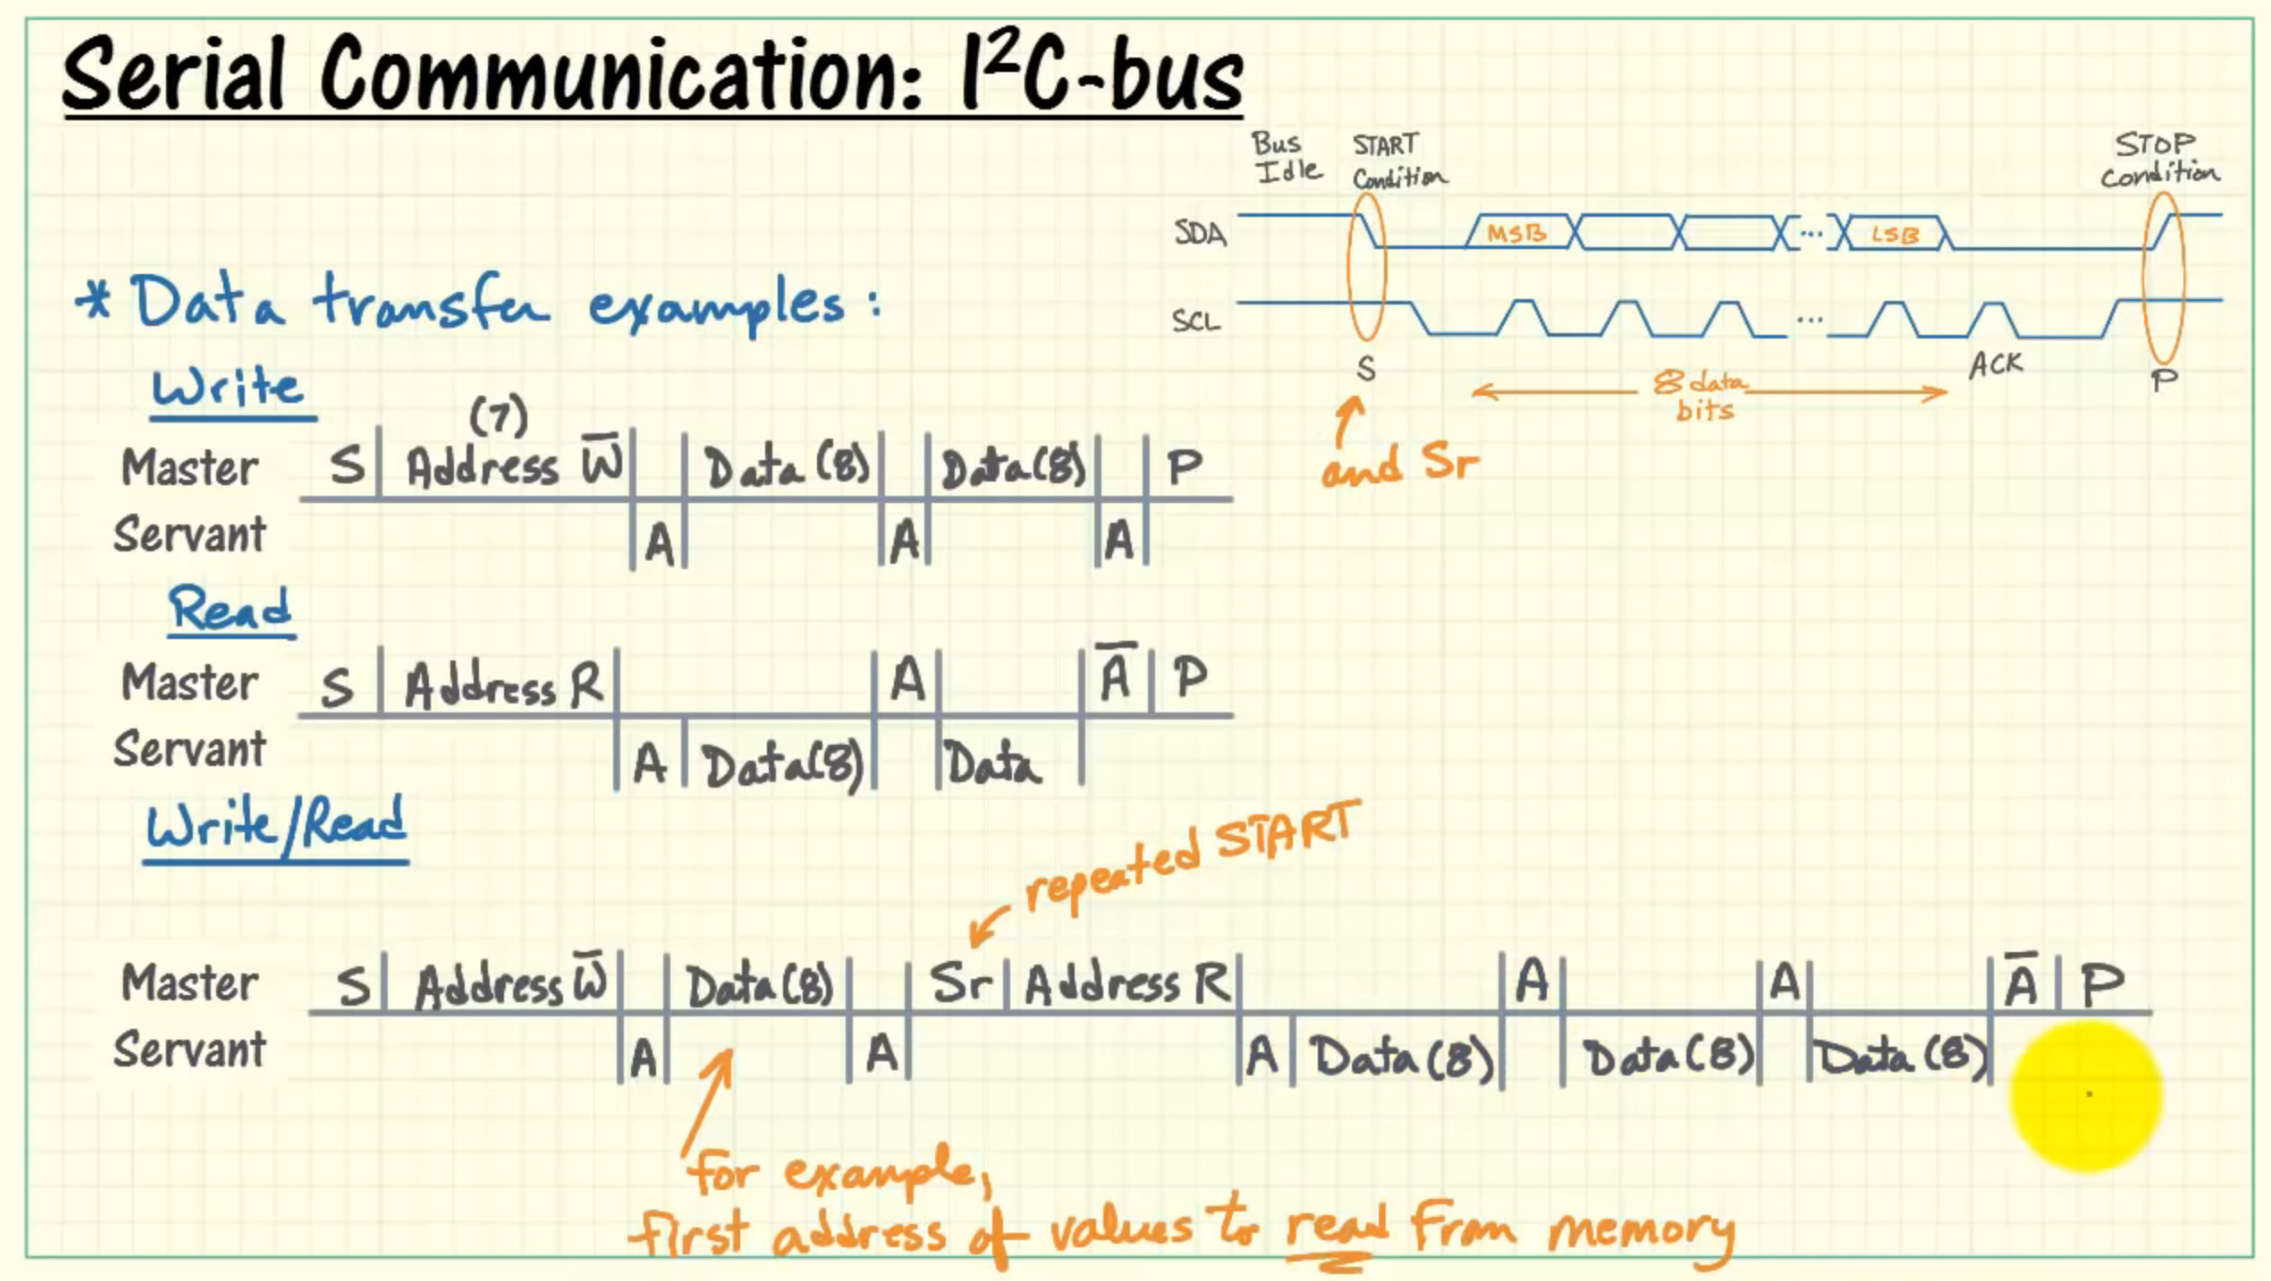 Serial Communication: I²C-bus
Bus Idle
START Condition
STOP Condition
SDA
MSB
...
LSB
SCL
...
S
ACK
P
8 data bits
and Sr
* Data transfer examples:
Write
(7)
Master S Address W̅ Data (8) Data (8) P
Servant A A A
Read
Master S Address R A A̅ P
Servant A Data (8) Data
Write/Read
repeated START
Master S Address W̅ Data (8) Sr Address R A A A̅ P
Servant A A A Data (8) Data (8) Data (8)
for example,
first address of values to read from memory